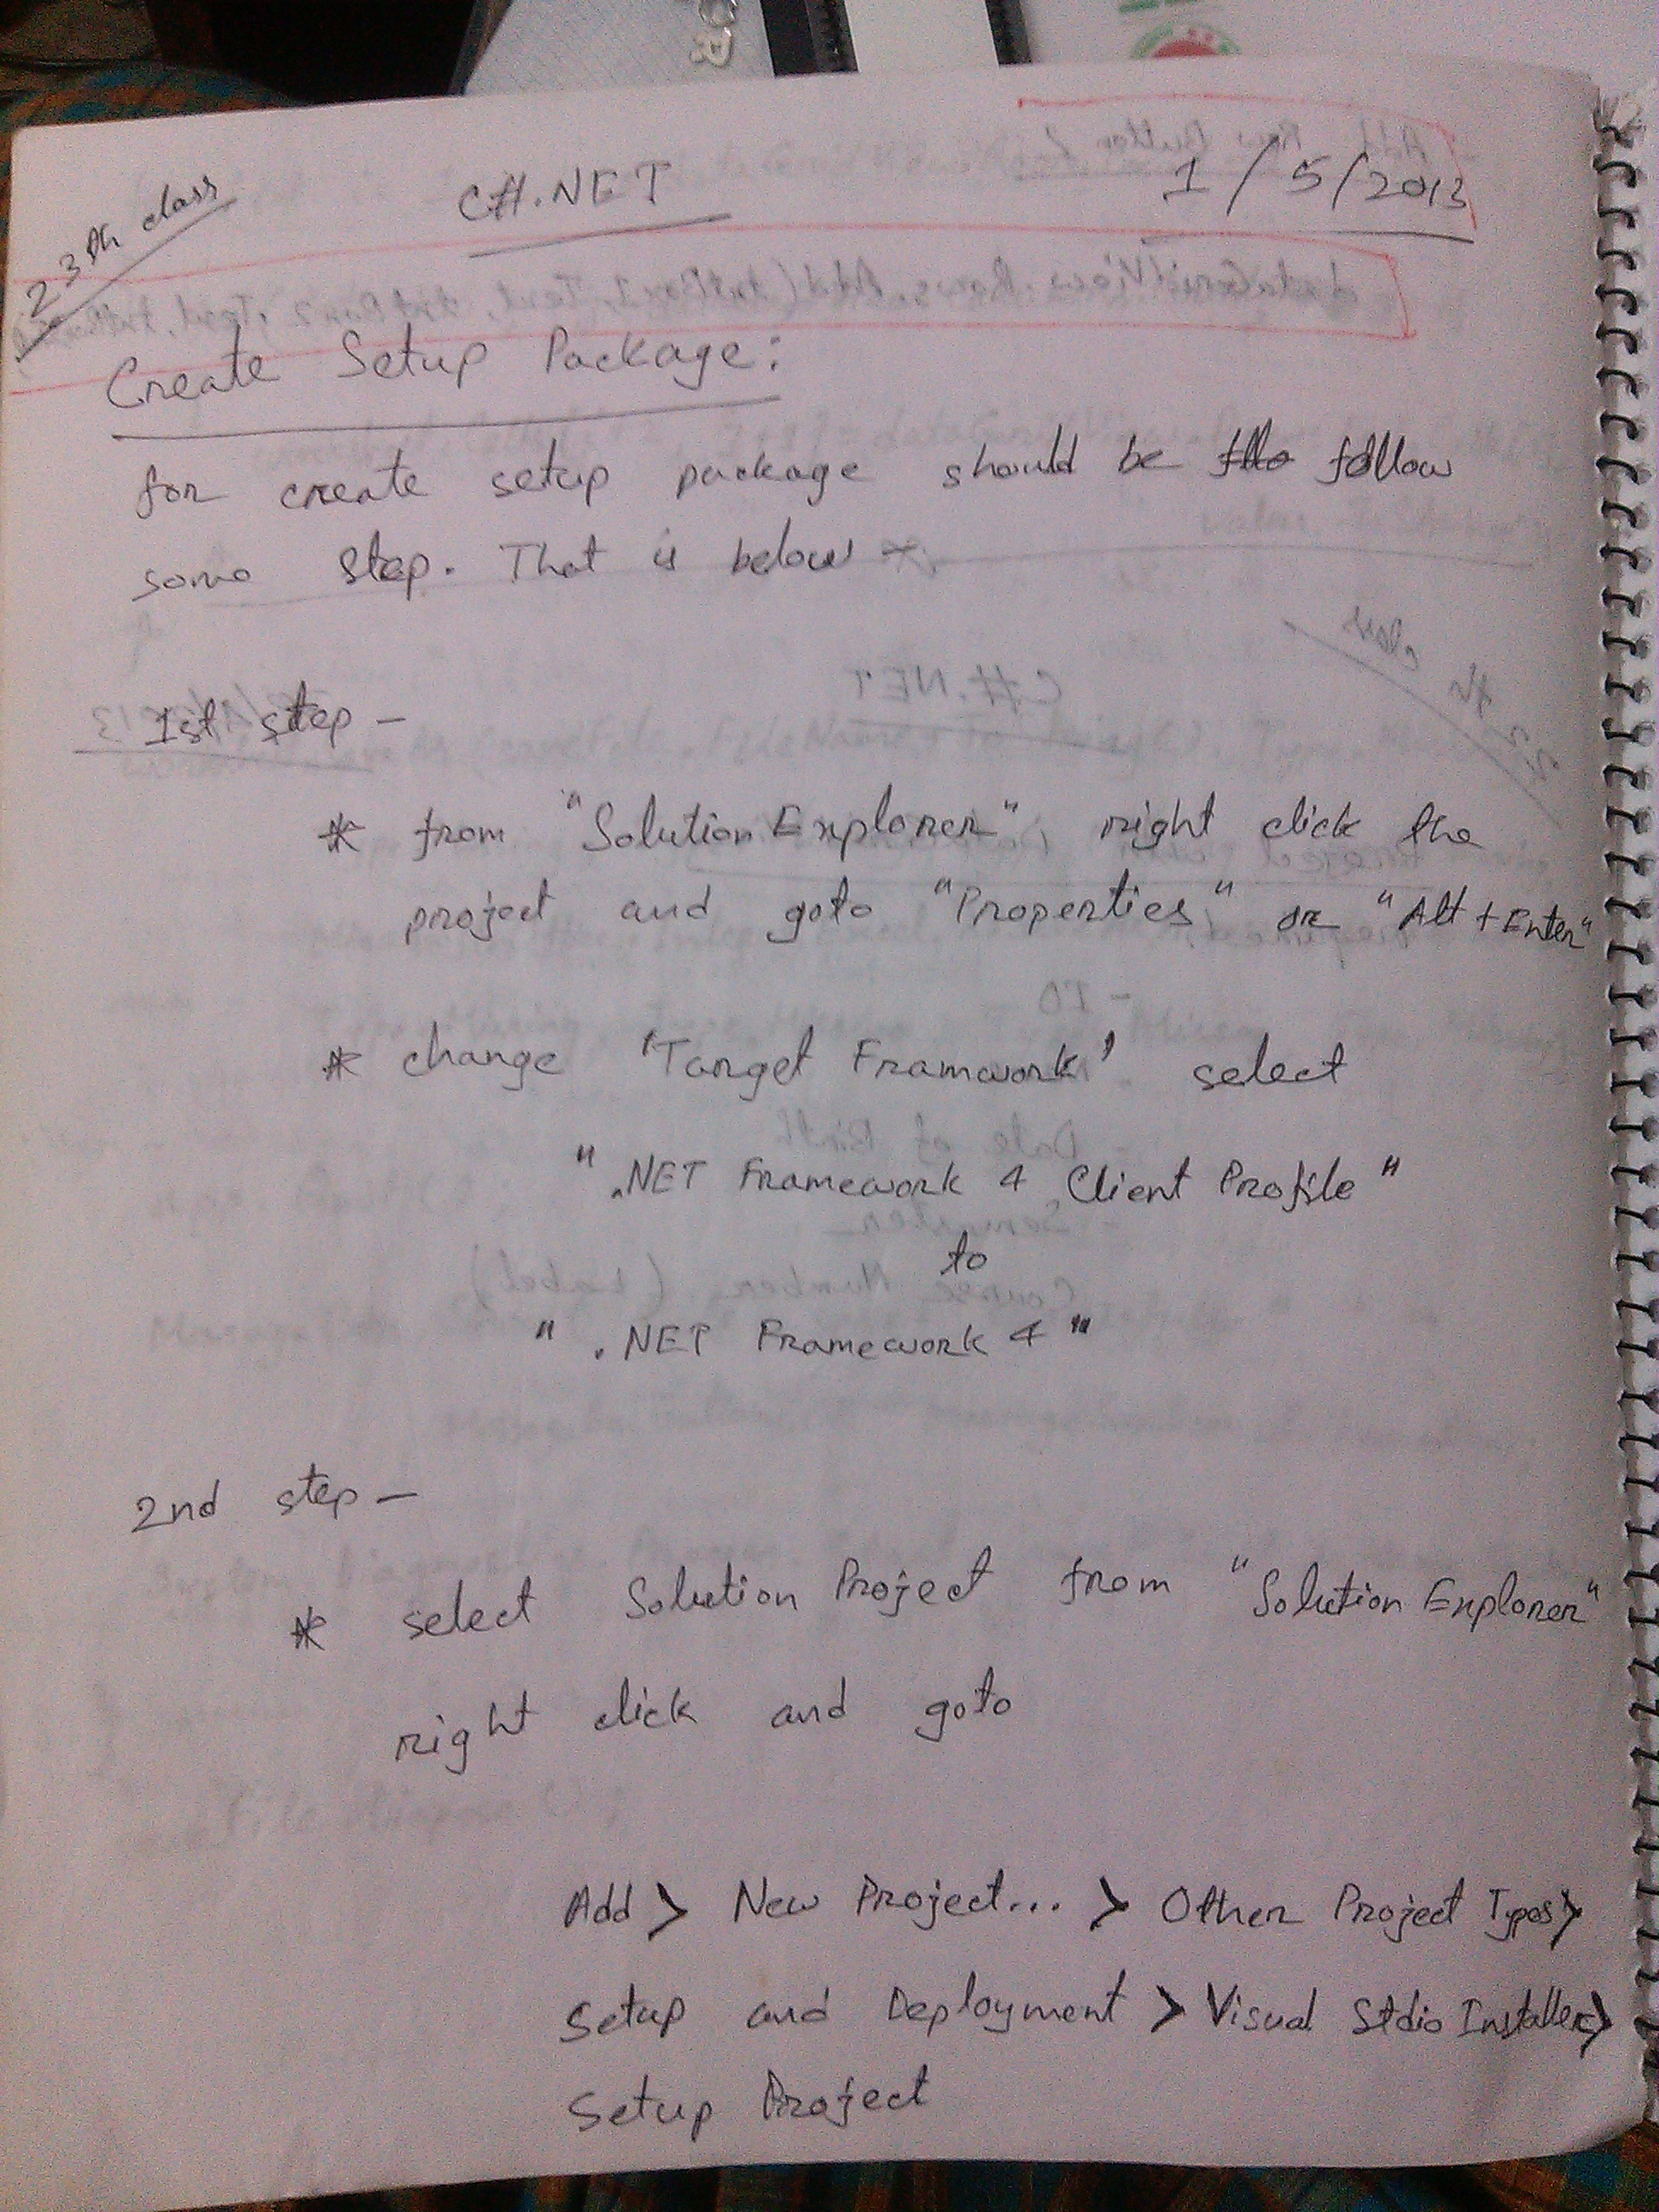 23th class
C#.NET
1/5/2013
Create Setup Package:
for create setup package should be follow
some step. That is below
1st step -
* from "Solution Explorer", right click the
project and goto "Properties" or "Alt + Enter"
* change 'Target Framwork' select
".NET Framework 4 Client Profile"
to
".NET Framework 4"
2nd step -
* select Solution Project from "Solution Explorer"
right click and goto
Add > New Project... > Other Project Types >
Setup and Deployment > Visual Stdio Installer >
Setup Project